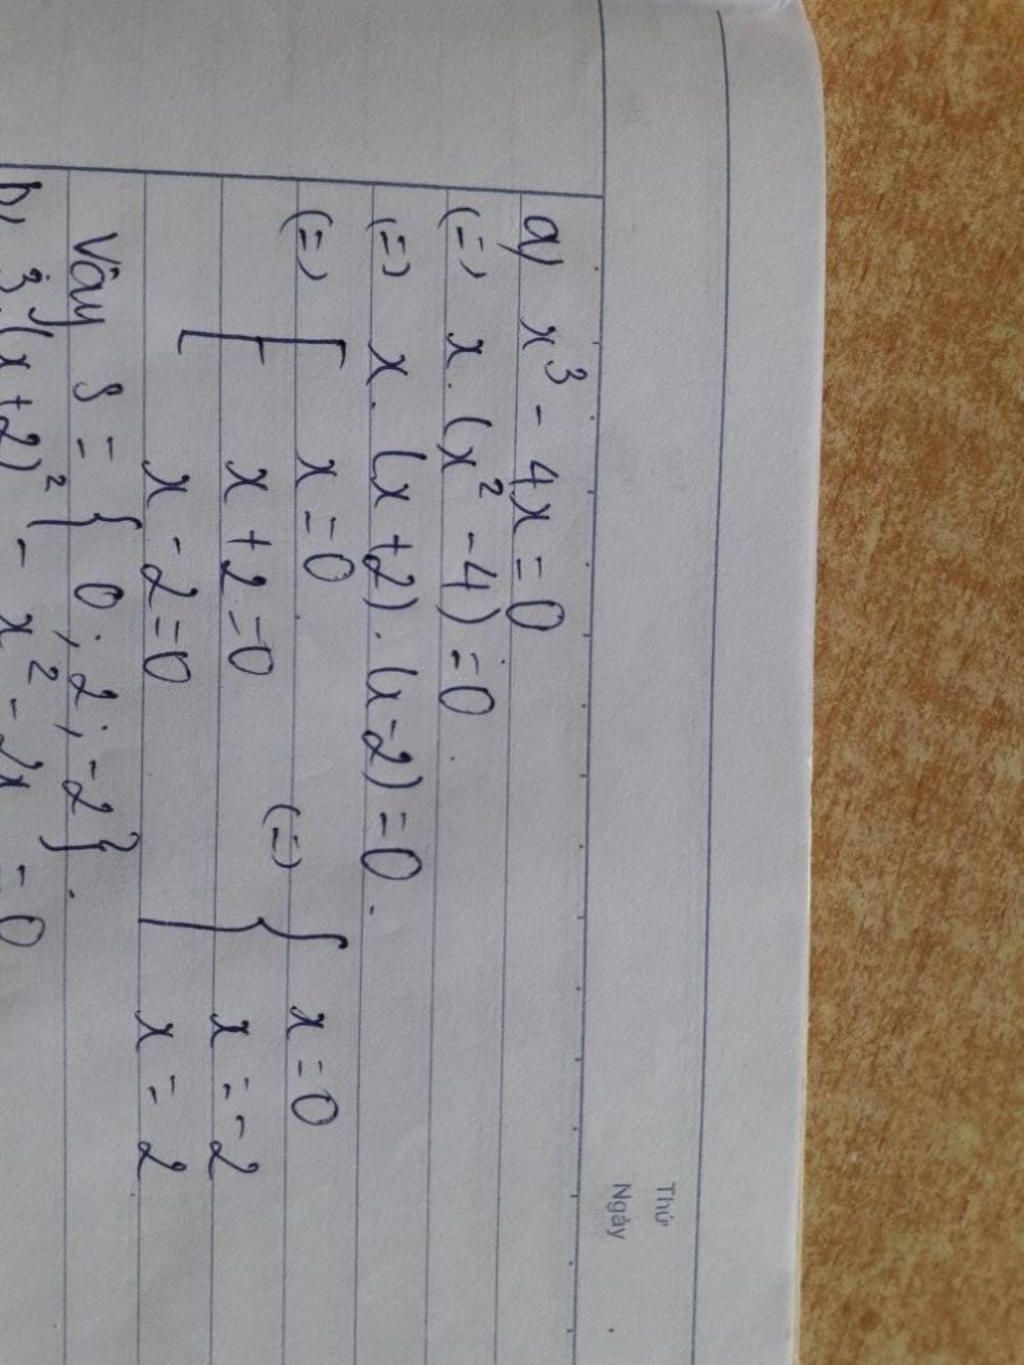 Thứ
Ngày
a) x³ - 4x = 0
(=) x . (x² - 4) = 0
(=) x . (x + 2) . (x - 2) = 0 .
(=) [ x = 0 (=) { x = 0
x + 2 = 0 x = -2
x - 2 = 0 x = 2
Vây S = { 0 ; 2 ; -2 } .
b) 3 (x + 2)² - x² - 2x = 0